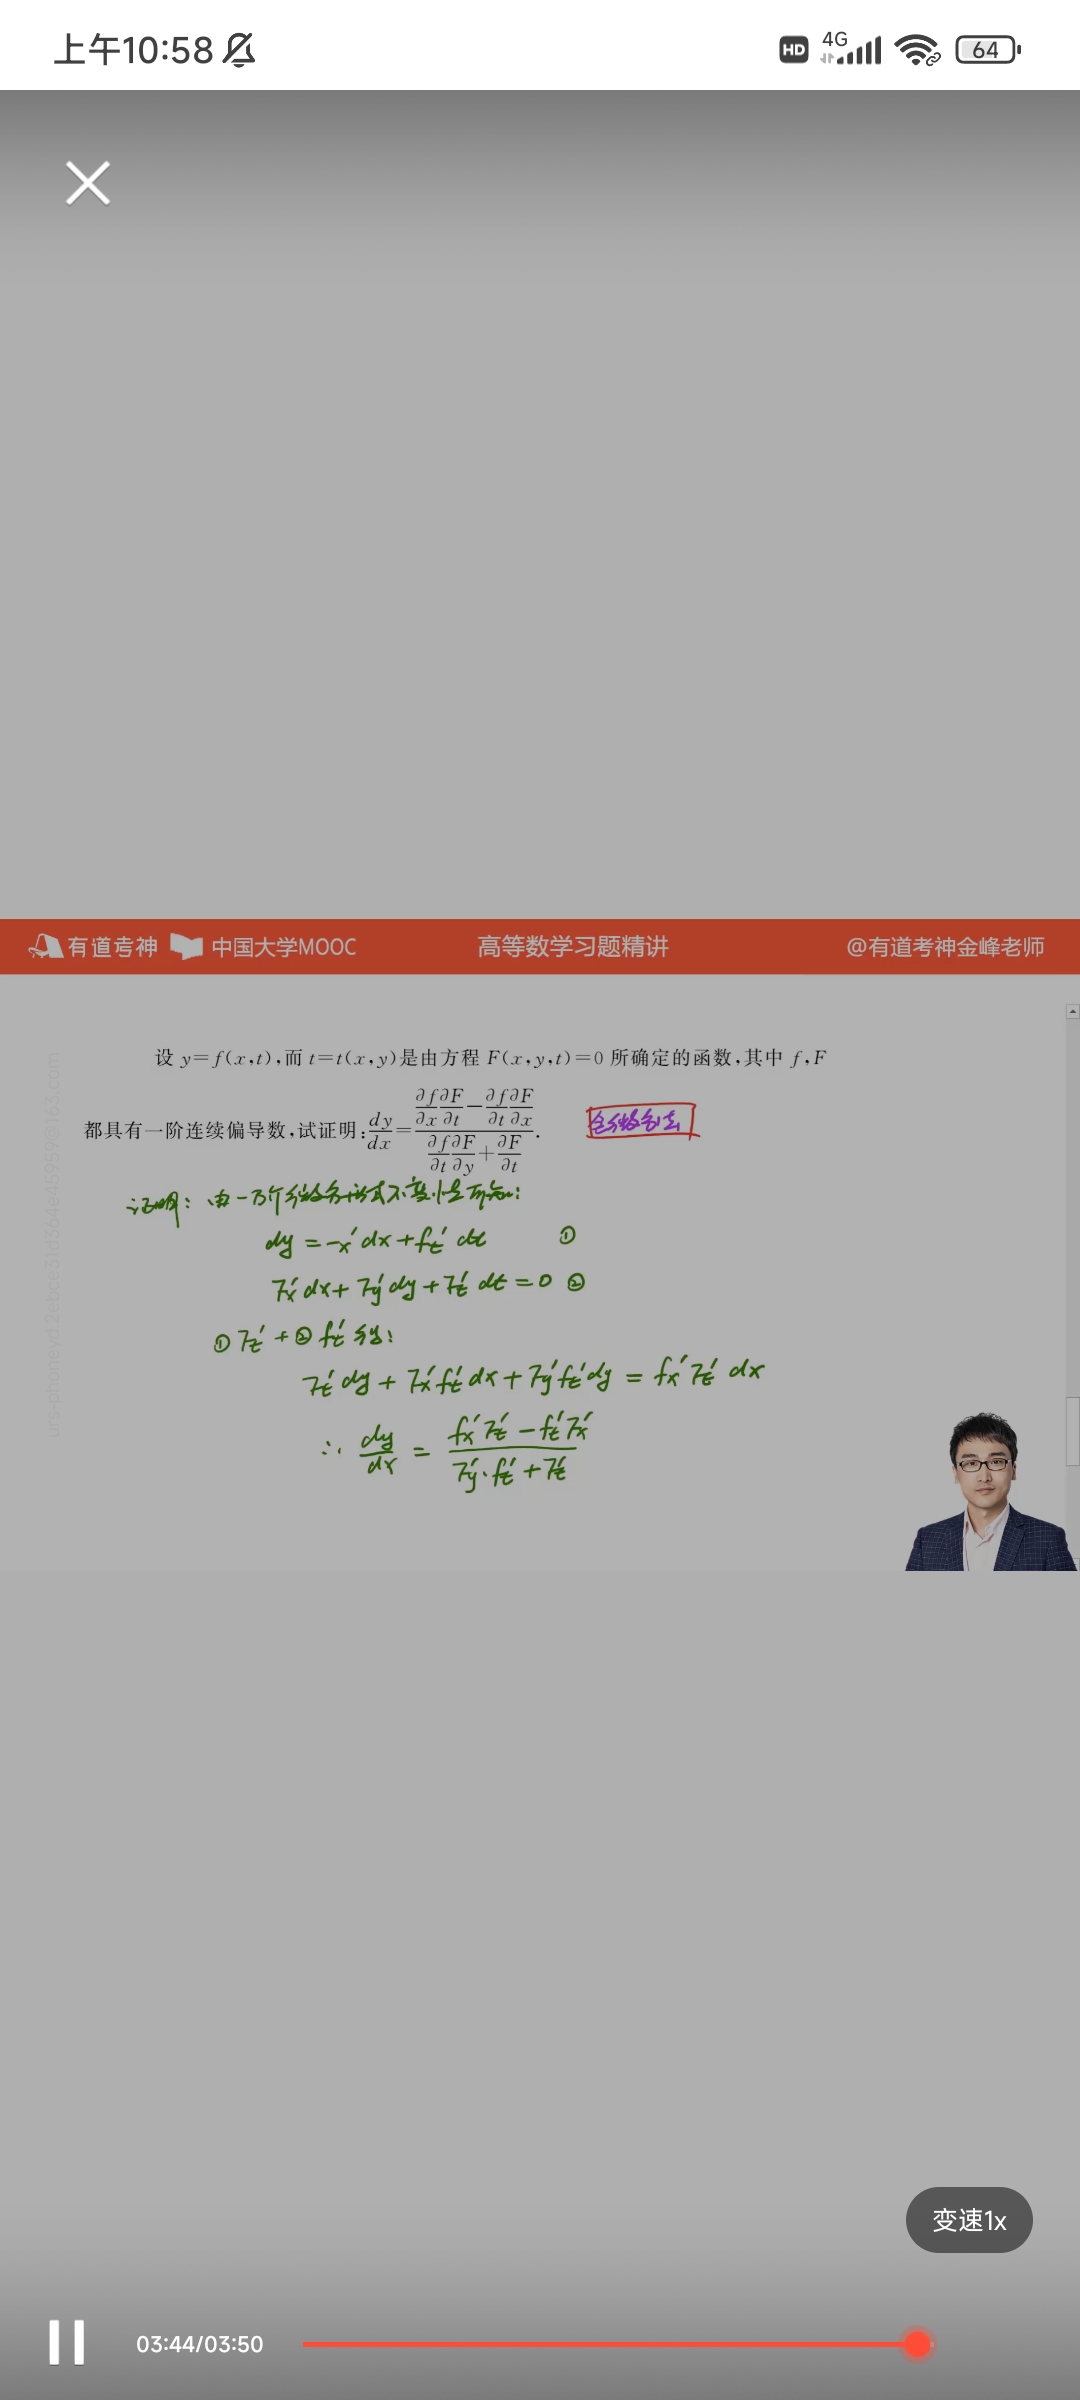 上午10:58
HD 4G 64
有道考神 中国大学MOOC 高等数学习题精讲 @有道考神金峰老师
设 y=f(x,t),而 t=t(x,y)是由方程 F(x,y,t)=0 所确定的函数,其中 f,F
都具有一阶连续偏导数,试证明: dy/dx = (∂f/∂x ∂F/∂t − ∂f/∂t ∂F/∂x)/(∂f/∂t ∂F/∂y + ∂F/∂t).
全微分法
证明: 由一阶全微分形式不变性可知:
dy = f′x dx + f′t dt ①
F′x dx + F′y dy + F′t dt = 0 ②
①F′t + ②f′t 得:
F′t dy + F′x f′t dx + F′y f′t dy = f′x F′t dx
∴ dy/dx = (f′x F′t − f′t F′x)/(F′y · f′t + F′t)
变速1x
03:44/03:50